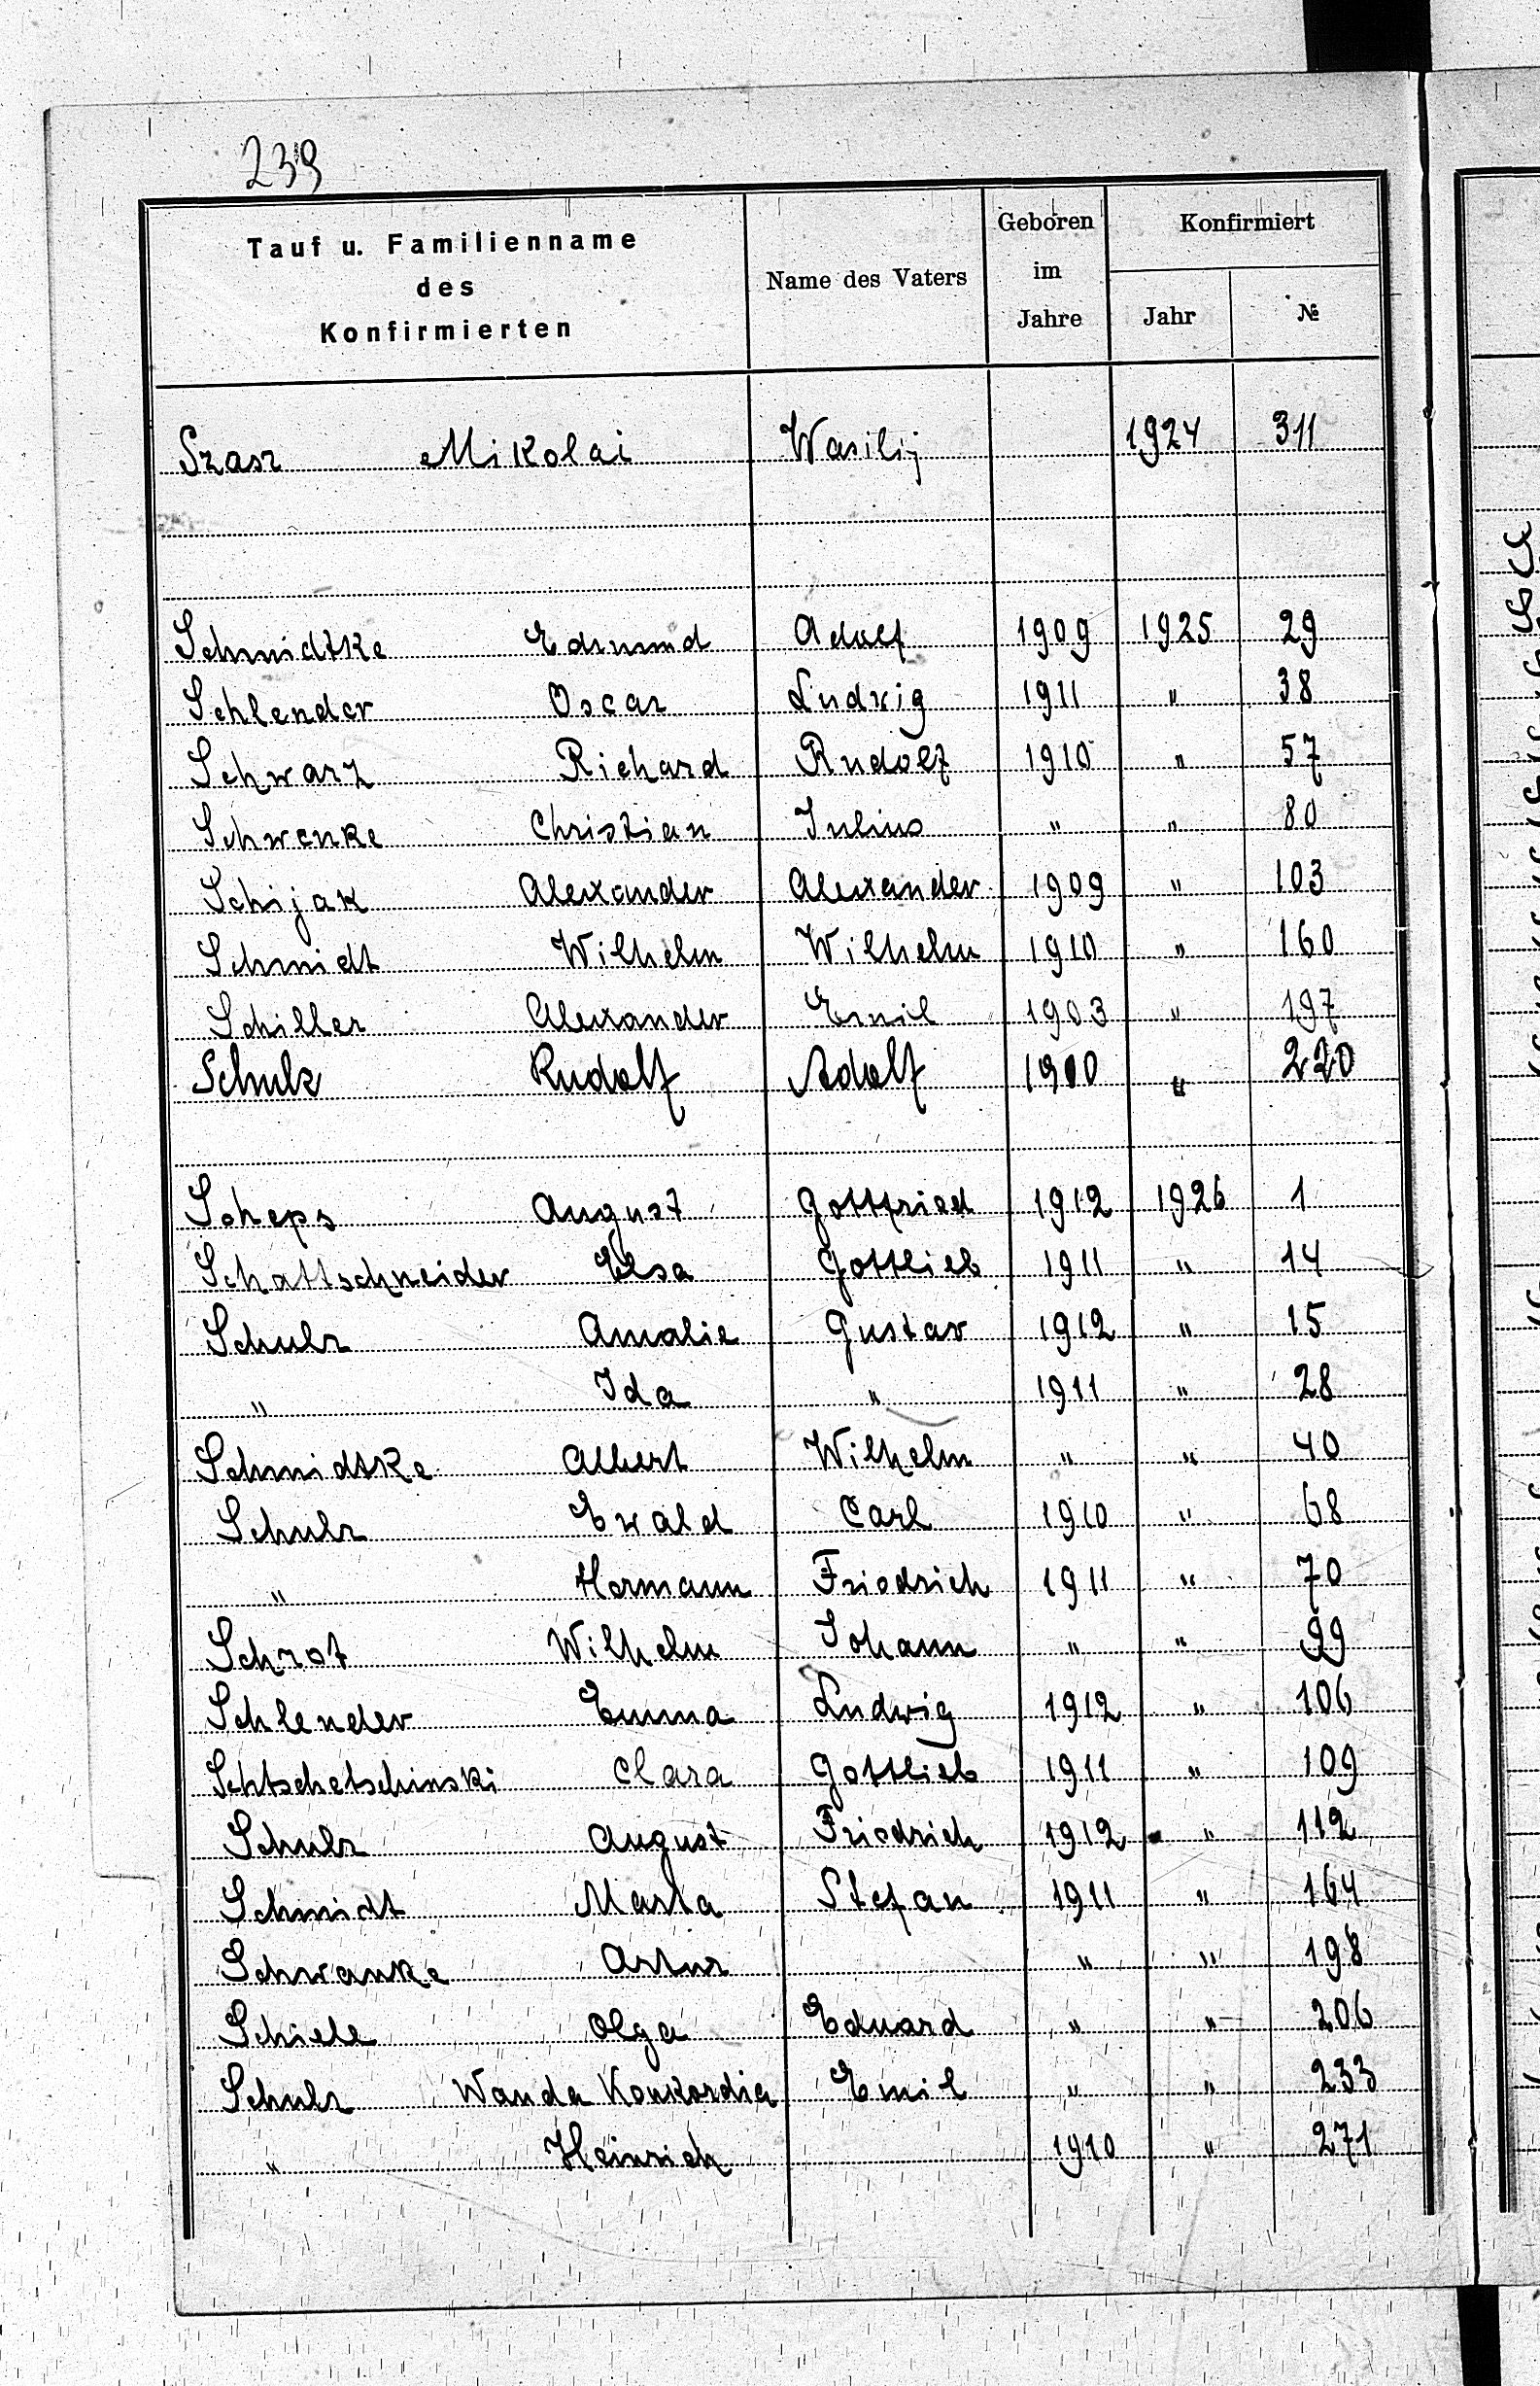 239
Tauf u. Familienname des Konfirmierten Name des Vaters Geboren im Jahre Konfirmiert Jahr №
Szasz Mikolai Wasilij 1924 311
Schmidtke Edmund Adolf 1909 1925 29
Schlender Oscar Ludwig 1911 " 38
Schwarz Richard Rudolf 1910 " 57
Schwenke Christian Julius " " 80
Schijak Alexander Alexander 1909 " 103
Schmidt Wilhelm Wilhelm 1910 " 160
Schiller Alexander Emil 1903 " 197
Schulz Rudolf Adolf 1910 " 220
Scheps August Gottfried 1912 1926 1
Schattschneider Elsa Gottlieb 1911 " 14
Schulz Amalie Gustav 1912 " 15
" Ida " 1911 " 28
Schmidtke Albert Wilhelm " " 40
Schulz Ewald Carl 1910 " 68
" Hermann Friedrich 1911 " 70
Schrot Wilhelm Johann " " 99
Schlender Emma Ludwig 1912 " 106
Schtschetschinski Clara Gottlieb 1911 " 109
Schulz August Friedrich 1912 " 112
Schmidt Marta Stefan 1911 " 164
Schwanke Artur " " 198
Schiele Olga Eduard " " 206
Schulz Wanda Konkordia Emil " " 233
" Heinrich 1910 " 271